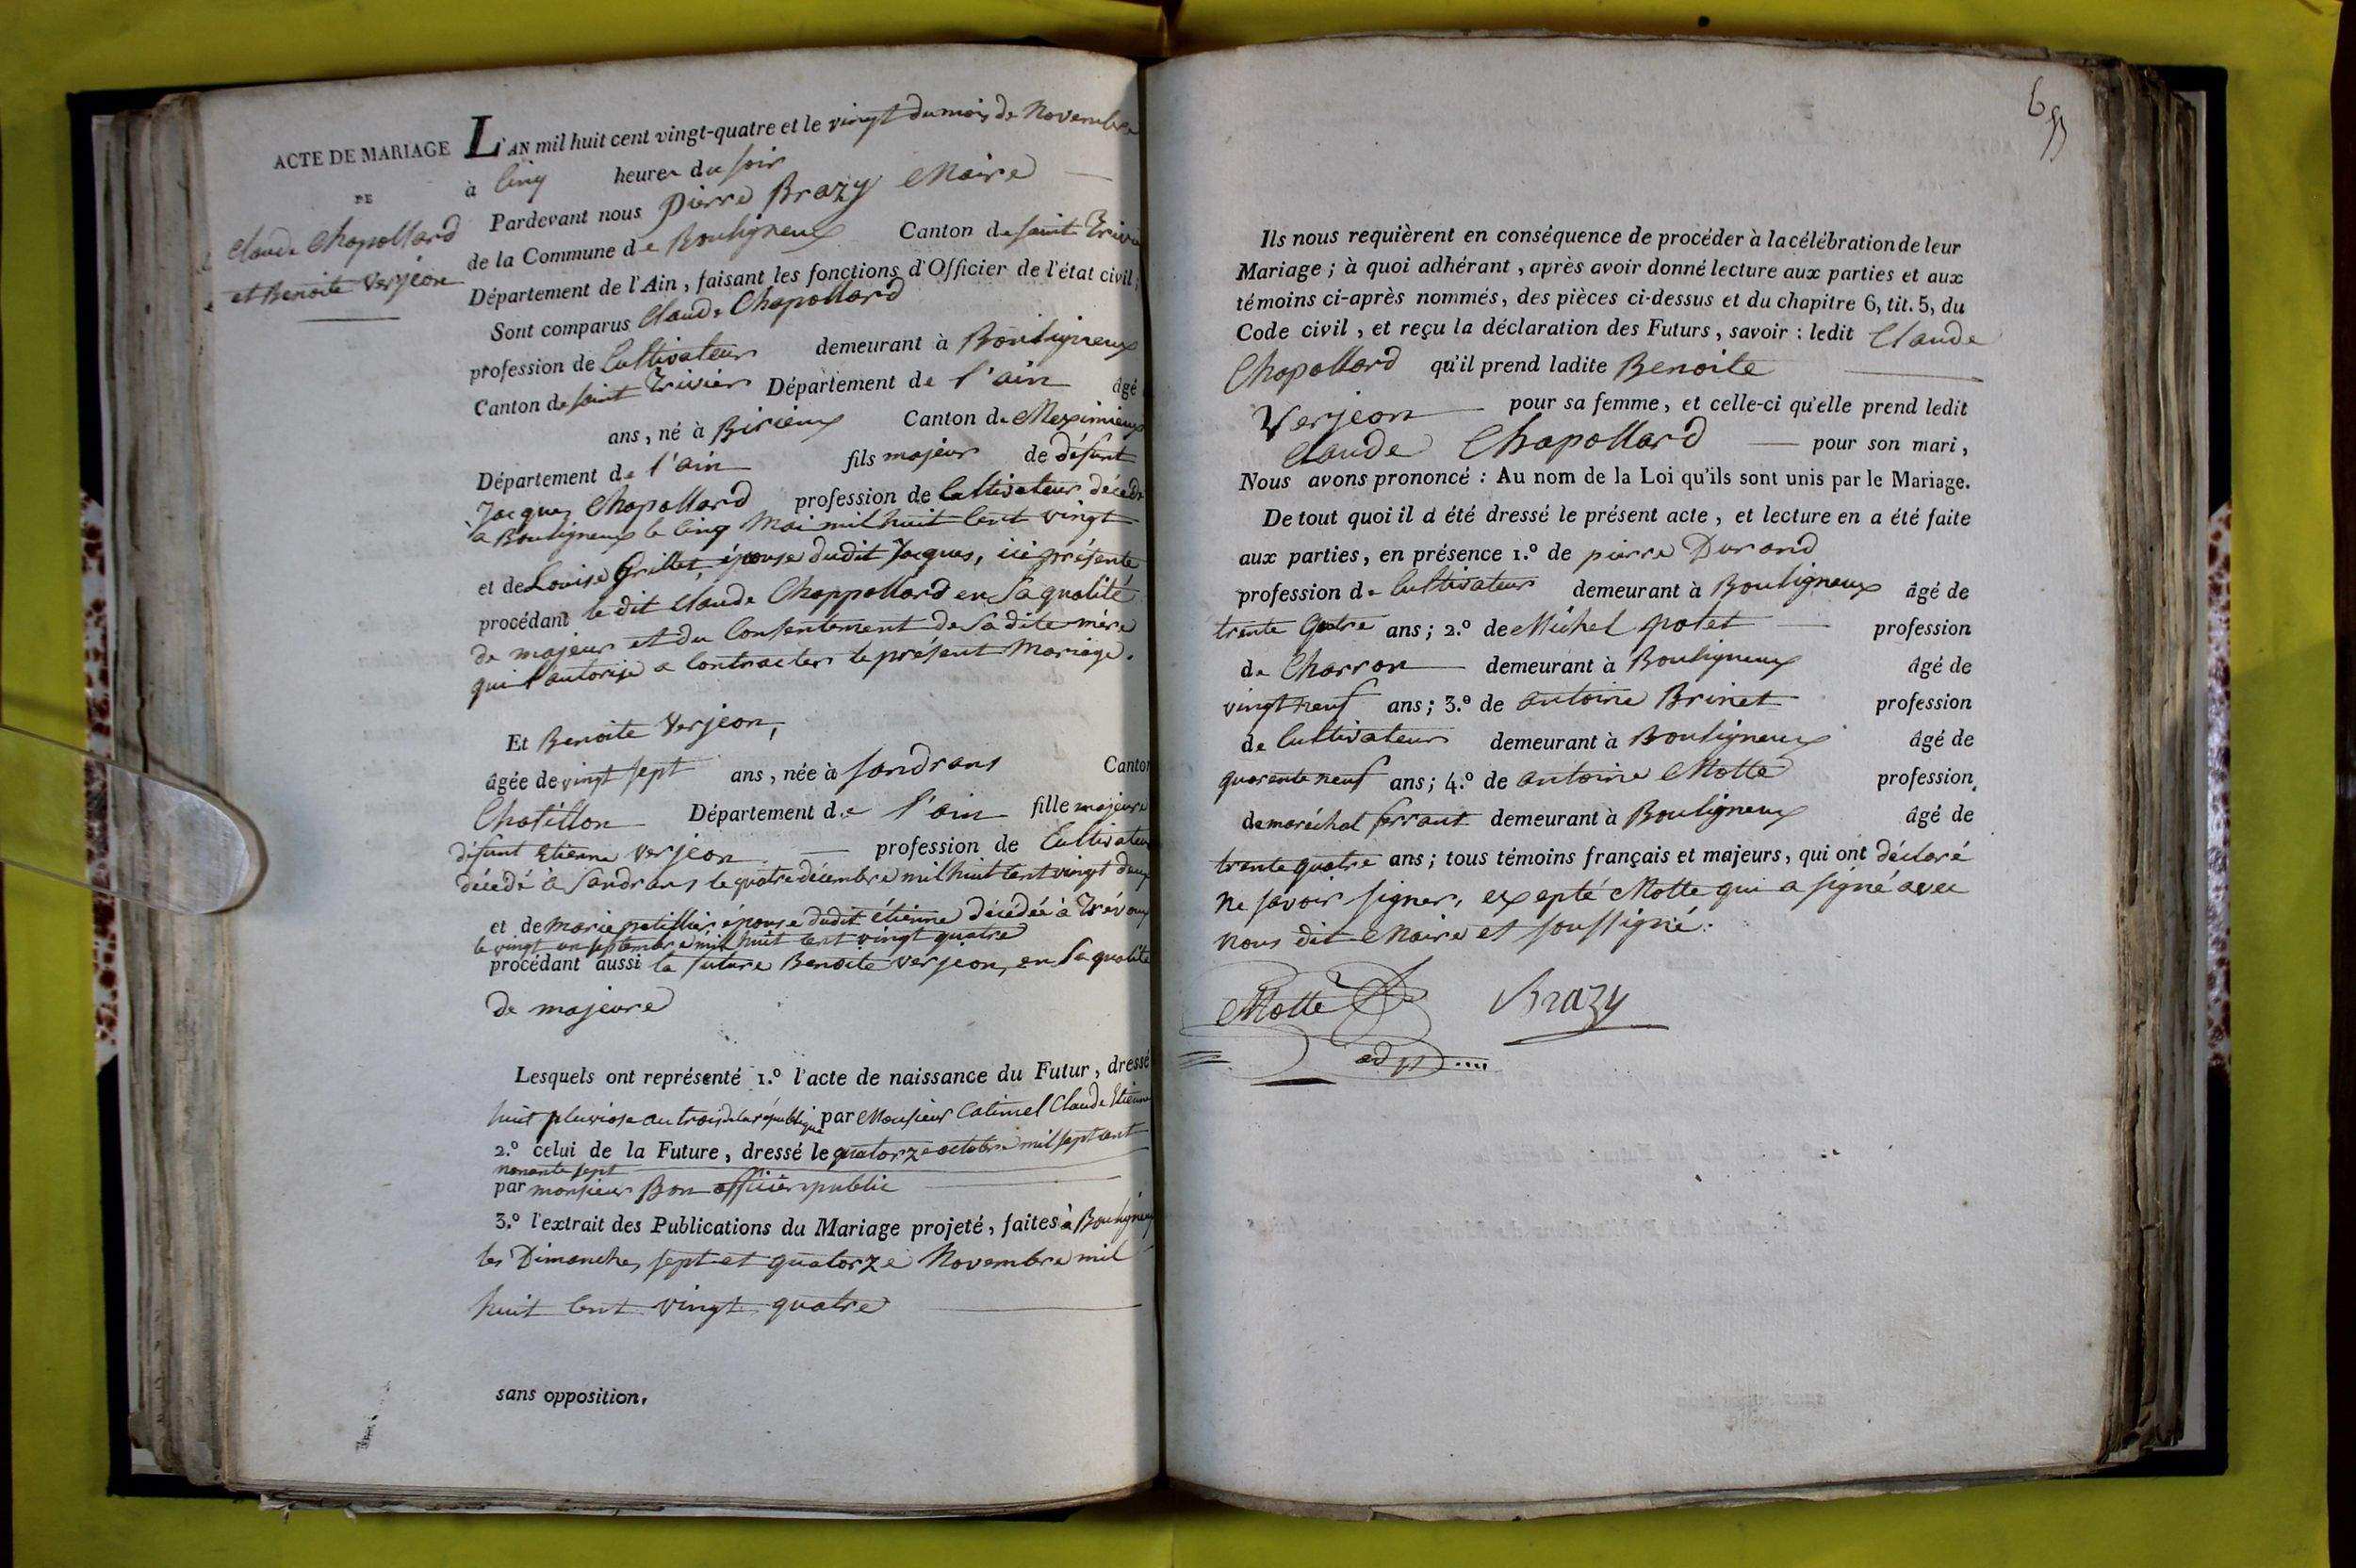 ACTE DE MARIAGE
DE
Claude Chapollard
et Benoite Verjeon
L'AN mil huit cent vingt-quatre et le vingt du mois de Novembre
à cinq heures du soir
Pardevant nous pierre Brazy Maire
de la Commune de Bouligneux Canton de saint Trivier
Département de l'Ain, faisant les fonctions d'Officier de l'état civil;
Sont comparus Claude Chapollard
profession de Cultivateur demeurant à Bouligneux
Canton de saint Trivier Département de l'ain âgé
ans, né à Birieux Canton de Meximieux
Département de l'ain fils majeur de défunt
Jacques Chapollard profession de Cultivateur décédé
a Bouligneux le cinq Mai mil huit cent vingt
et de Louise Grillet, épouse dudit Jacques, ici présente
procédant le dit Claude Chappollard en sa qualité
de majeur et du Consentement de sa dite mère
qui l'autorise a Contracter le présent Mariage.
Et Benoite Verjeon,
âgée de vingt sept ans, née à sandrans Canton
Chatillon Département de l'ain fille majeure
défunt Etienne verjeon profession de Cultivateur
décédé à Sandrans le quatre décembre mil huit cent vingt deux
et de marie patillier épouse dudit étienne décédée à Trévoux
le vingt un septembre mil huit cent vingt quatre
procédant aussi la future Benoite verjeon, en sa qualité
de majeure
Lesquels ont représenté 1.º l'acte de naissance du Futur, dressé
huit pluviose an trois de la république par Monsieur Catimel Claude Etienne
2.º celui de la Future, dressé le quatorze octobre mil sept cent
nonante sept
par monsieur Bon officier public
3.º l'extrait des Publications du Mariage projeté, faites à Bouligneux
les Dimanches sept et quatorze Novembre mil
huit cent vingt quatre
sans opposition.
65
Ils nous requièrent en conséquence de procéder à la célébration de leur
Mariage; à quoi adhérant, après avoir donné lecture aux parties et aux
témoins ci-après nommés, des pièces ci-dessus et du chapitre 6, tit. 5, du
Code civil, et reçu la déclaration des Futurs, savoir: ledit Claude
Chapollard qu'il prend ladite Benoite
Verjeon pour sa femme, et celle-ci qu'elle prend ledit
Claude Chapollard pour son mari,
Nous avons prononcé: Au nom de la Loi qu'ils sont unis par le Mariage.
De tout quoi il a été dressé le présent acte, et lecture en a été faite
aux parties, en présence 1.º de pierre Durand
profession de Cultivateur demeurant à Bouligneux âgé de
trente quatre ans; 2.º de Michel potet profession
de Charron demeurant à Bouligneux âgé de
vingt neuf ans; 3.º de antoine Brinet profession
de Cultivateur demeurant à Bouligneux âgé de
quarente neuf ans; 4.º de antoine Motte profession
de maréchal ferrant demeurant à Bouligneux âgé de
trente quatre ans; tous témoins français et majeurs, qui ont déclaré
ne savoir signer, expepté Motte qui a signé avec
nous dit Maire et soussigné.
Motte Brazy